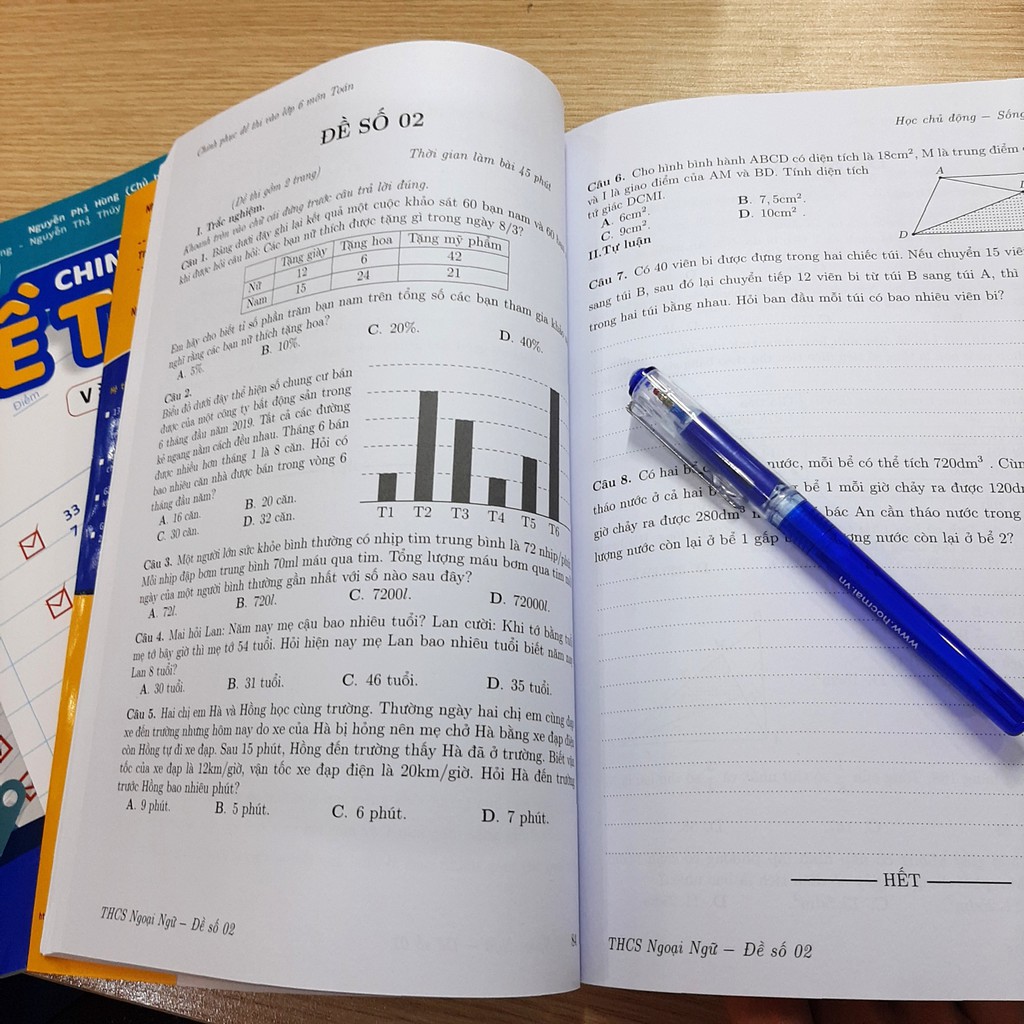 Nguyễn Phi Hùng (Chủ
Nguyễn Thị Thúy
CHIN
Ề T
Điểm
V
33
7
Chinh phục đề thi vào lớp 6 môn Toán
ĐỀ SỐ 02
Thời gian làm bài 45 phút
(Đề thi gồm 2 trang)
I. Trắc nghiệm.
Khoanh tròn vào chữ cái đứng trước câu trả lời đúng.
Câu 1. Bảng dưới đây ghi lại kết quả một cuộc khảo sát 60 bạn nam và 60
khi được hỏi câu hỏi: Các bạn nữ thích được tặng gì trong ngày 8/3?
Tặng giày Tặng hoa Tặng mỹ phẩm
Nữ 12 6 42
Nam 15 24 21
Em hãy cho biết tỉ số phần trăm bạn nam trên tổng số các bạn tham gia
nghĩ rằng các bạn nữ thích tặng hoa?
A. 5%. B. 10%. C. 20%. D. 40%.
Câu 2.
Biểu đồ dưới đây thể hiện số chung cư bán
được của một công ty bất động sản trong
6 tháng đầu năm 2019. Tất cả các đường
kẻ ngang nằm cách đều nhau. Tháng 6 bán
được nhiều hơn tháng 1 là 8 căn. Hỏi có
bao nhiêu căn nhà được bán trong vòng 6
tháng đầu năm?
A. 16 căn. B. 20 căn.
C. 30 căn. D. 32 căn.
T1 T2 T3 T4 T5 T6
Câu 3. Một người lớn sức khỏe bình thường có nhịp tim trung bình là 72 nhịp/
Mỗi nhịp đập bơm trung bình 70ml máu qua tim. Tổng lượng máu bơm qua tim
ngày của một người bình thường gần nhất với số nào sau đây?
A. 72l. B. 720l. C. 7200l. D. 72000l.
Câu 4. Mai hỏi Lan: Năm nay mẹ cậu bao nhiêu tuổi? Lan cười: Khi tớ bằng
mẹ tớ bây giờ thì mẹ tớ 54 tuổi. Hỏi hiện nay mẹ Lan bao nhiêu tuổi biết năm
Lan 8 tuổi?
A. 30 tuổi. B. 31 tuổi. C. 46 tuổi. D. 35 tuổi.
Câu 5. Hai chị em Hà và Hồng học cùng trường. Thường ngày hai chị em cùng
xe đến trường nhưng hôm nay do xe của Hà bị hỏng nên mẹ chở Hà bằng xe đạp
còn Hồng tự đi xe đạp. Sau 15 phút, Hồng đến trường thấy Hà đã ở trường. Biết
tốc của xe đạp là 12km/giờ, vận tốc xe đạp điện là 20km/giờ. Hỏi Hà đến trường
trước Hồng bao nhiêu phút?
A. 9 phút. B. 5 phút. C. 6 phút. D. 7 phút.
THCS Ngoại Ngữ – Đề số 02
Học chủ động – Sống
Câu 6. Cho hình bình hành ABCD có diện tích là 18cm², M là trung điểm
và I là giao điểm của AM và BD. Tính diện tích
tứ giác DCMI.
A. 6cm². B. 7,5cm².
C. 9cm². D. 10cm² .
A
D
II.Tự luận
Câu 7. Có 40 viên bi được đựng trong hai chiếc túi. Nếu chuyển 15
sang túi B, sau đó lại chuyển tiếp 12 viên bi từ túi B sang túi A, thì
trong hai túi bằng nhau. Hỏi ban đầu mỗi túi có bao nhiêu viên bi?
Câu 8. Có hai bể nước, mỗi bể có thể tích 720dm³ .
tháo nước ở cả hai bể 1 mỗi giờ chảy ra được
giờ chảy ra được 280dm³ bác An cần tháo nước trong
lượng nước còn lại ở bể 1 gấp lượng nước còn lại ở bể 2?
www.hocmai.vn
HẾT
THCS Ngoại Ngữ – Đề số 02